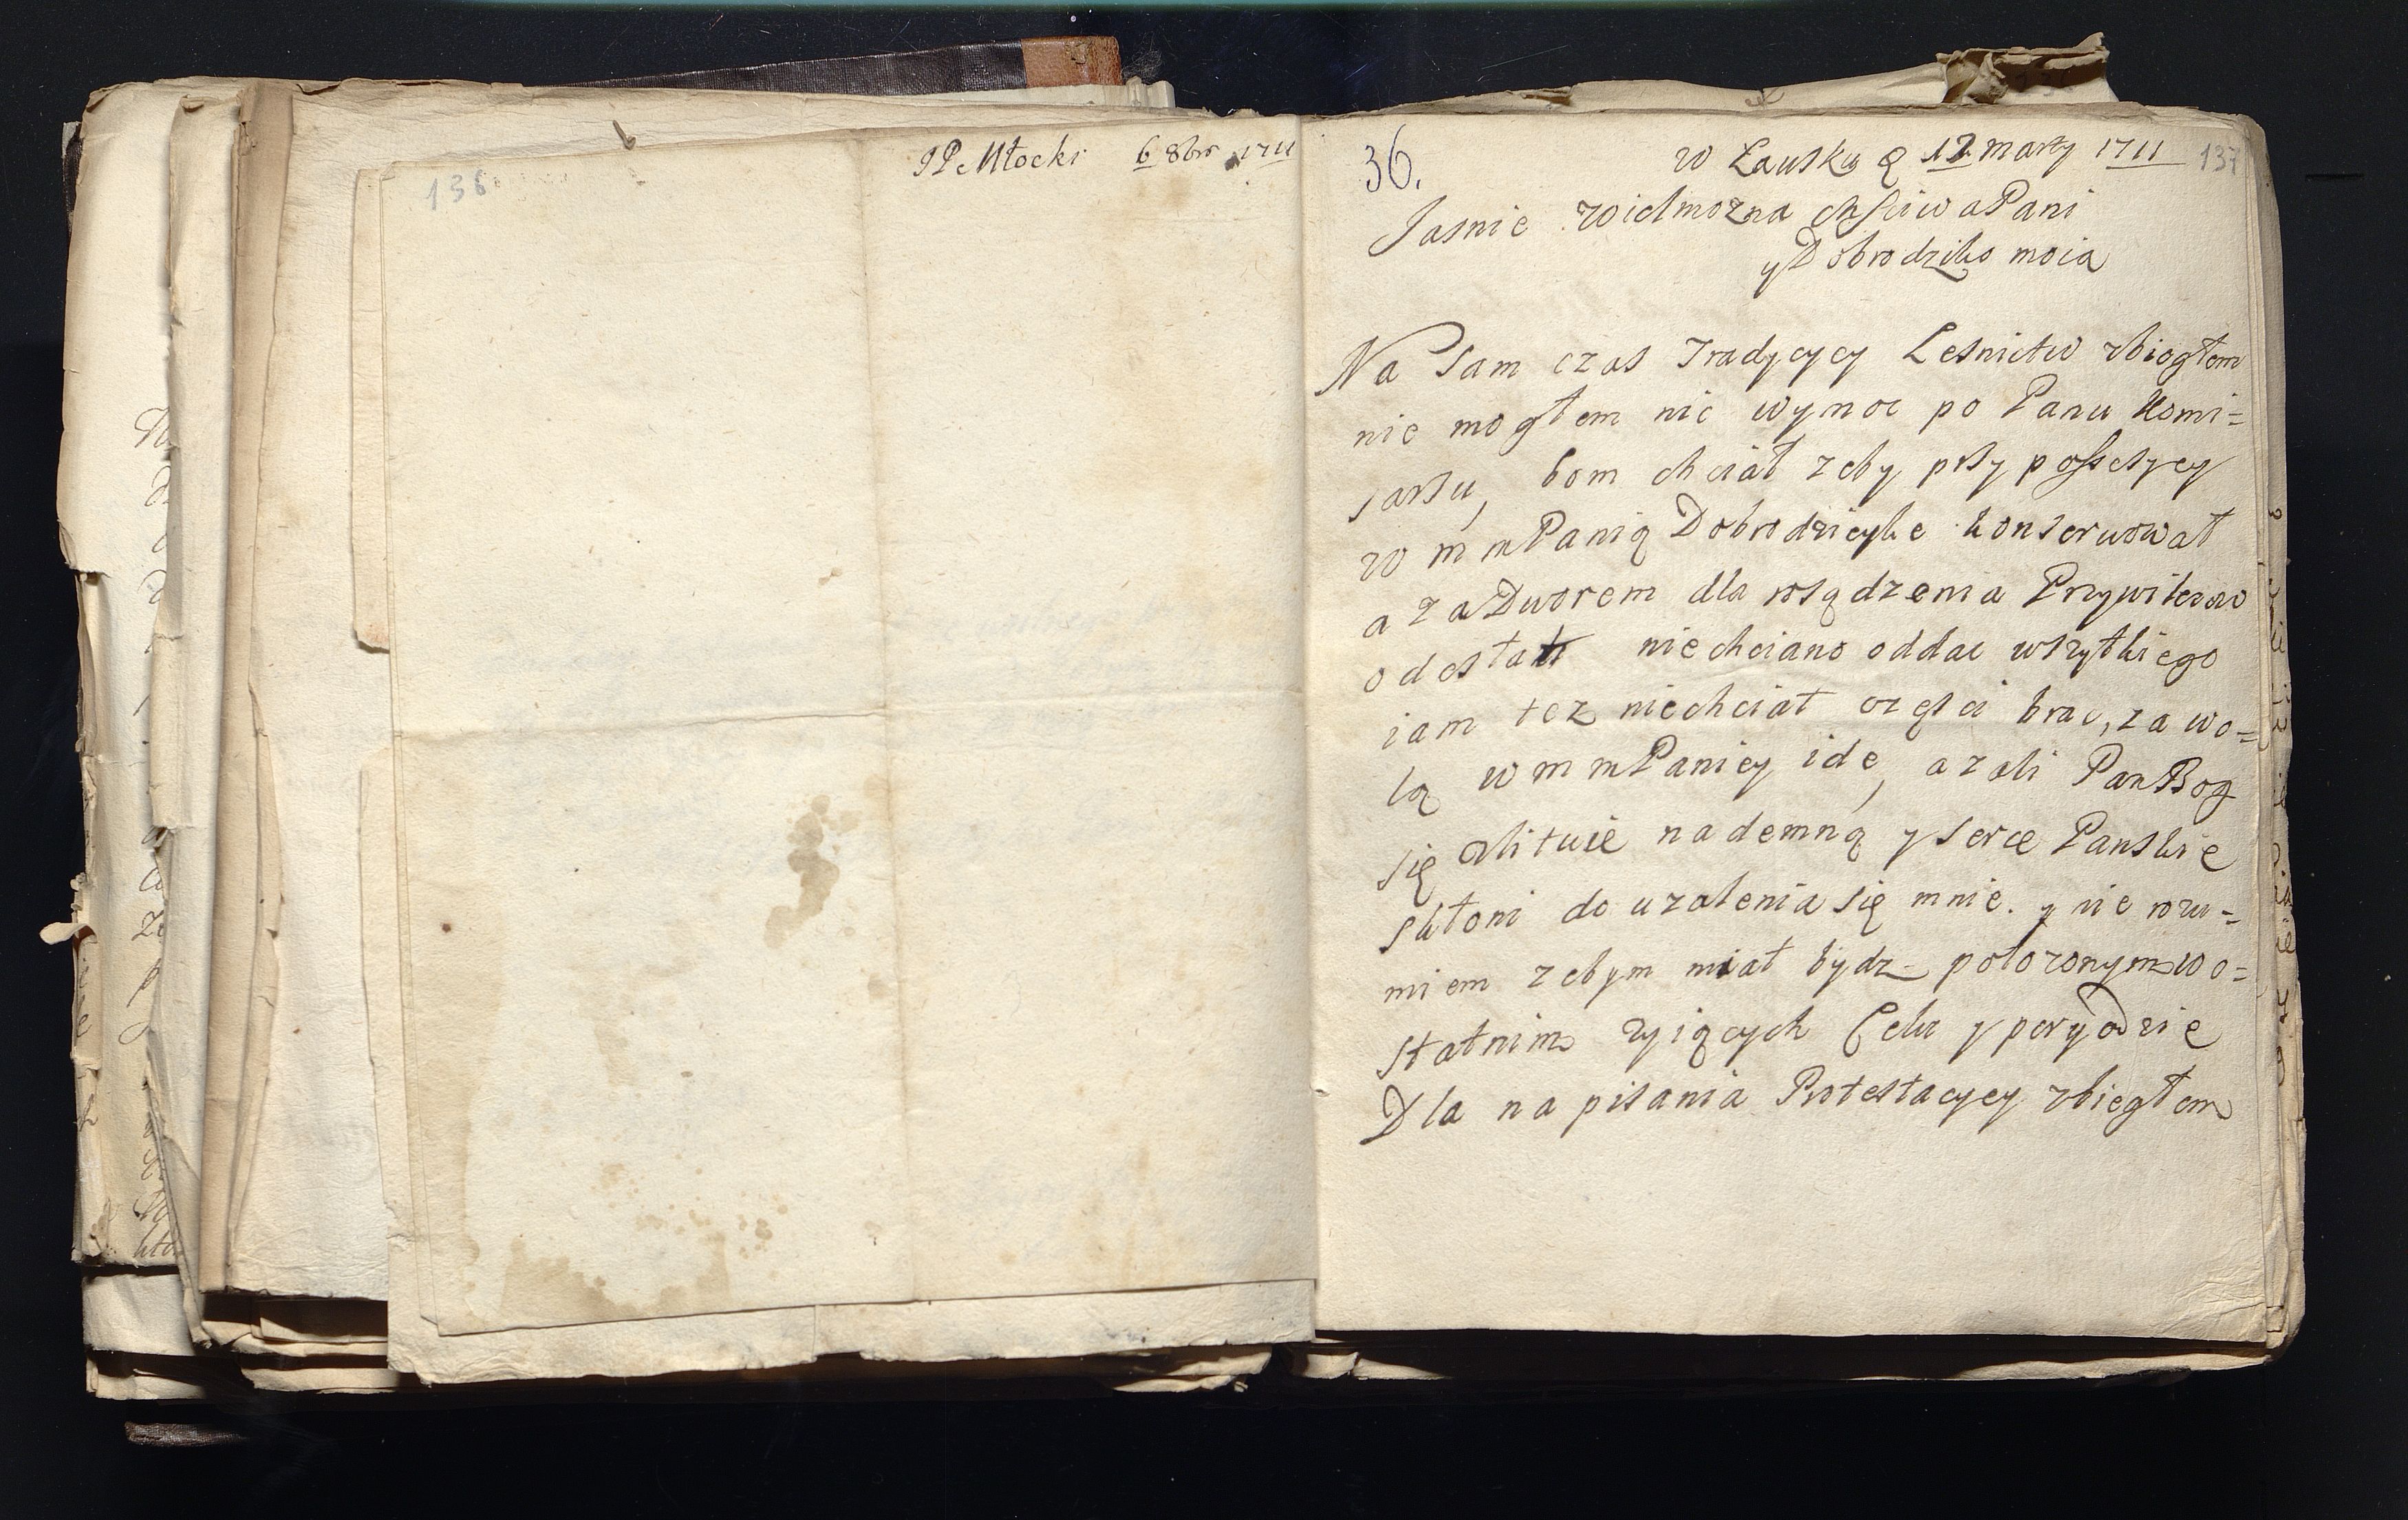 136
JP Młocki 6 8br 1711
36.
w Łausku 12 marty 1711
137
Jasnie Wielmozna Mściwa Pani
y Dobrodziko moia
Na sam czas Tradycyey Lesnictw zbiegłem
nie mogłem nic wymoc po Panu Komi=
sarsu, bom chciał zeby psy possesyey
w m mPanią Dobrodzieyke konserwował
a za Dworem dla rosądzenia Przywilesow
odesłał niechciano oddac wszytkiego
iam tez niechciał częsci brac, za wo=
lą w m mPaniey ide, azali PanBog
się zlituie nademną y serce Panskie
skłoni do uzalenia się mnie. y nie rozu=
miem zebym miał bydz położonym w o=
statnim zyiących Celu y peryodzie
Dla napisania Protestacyey zbiegłem